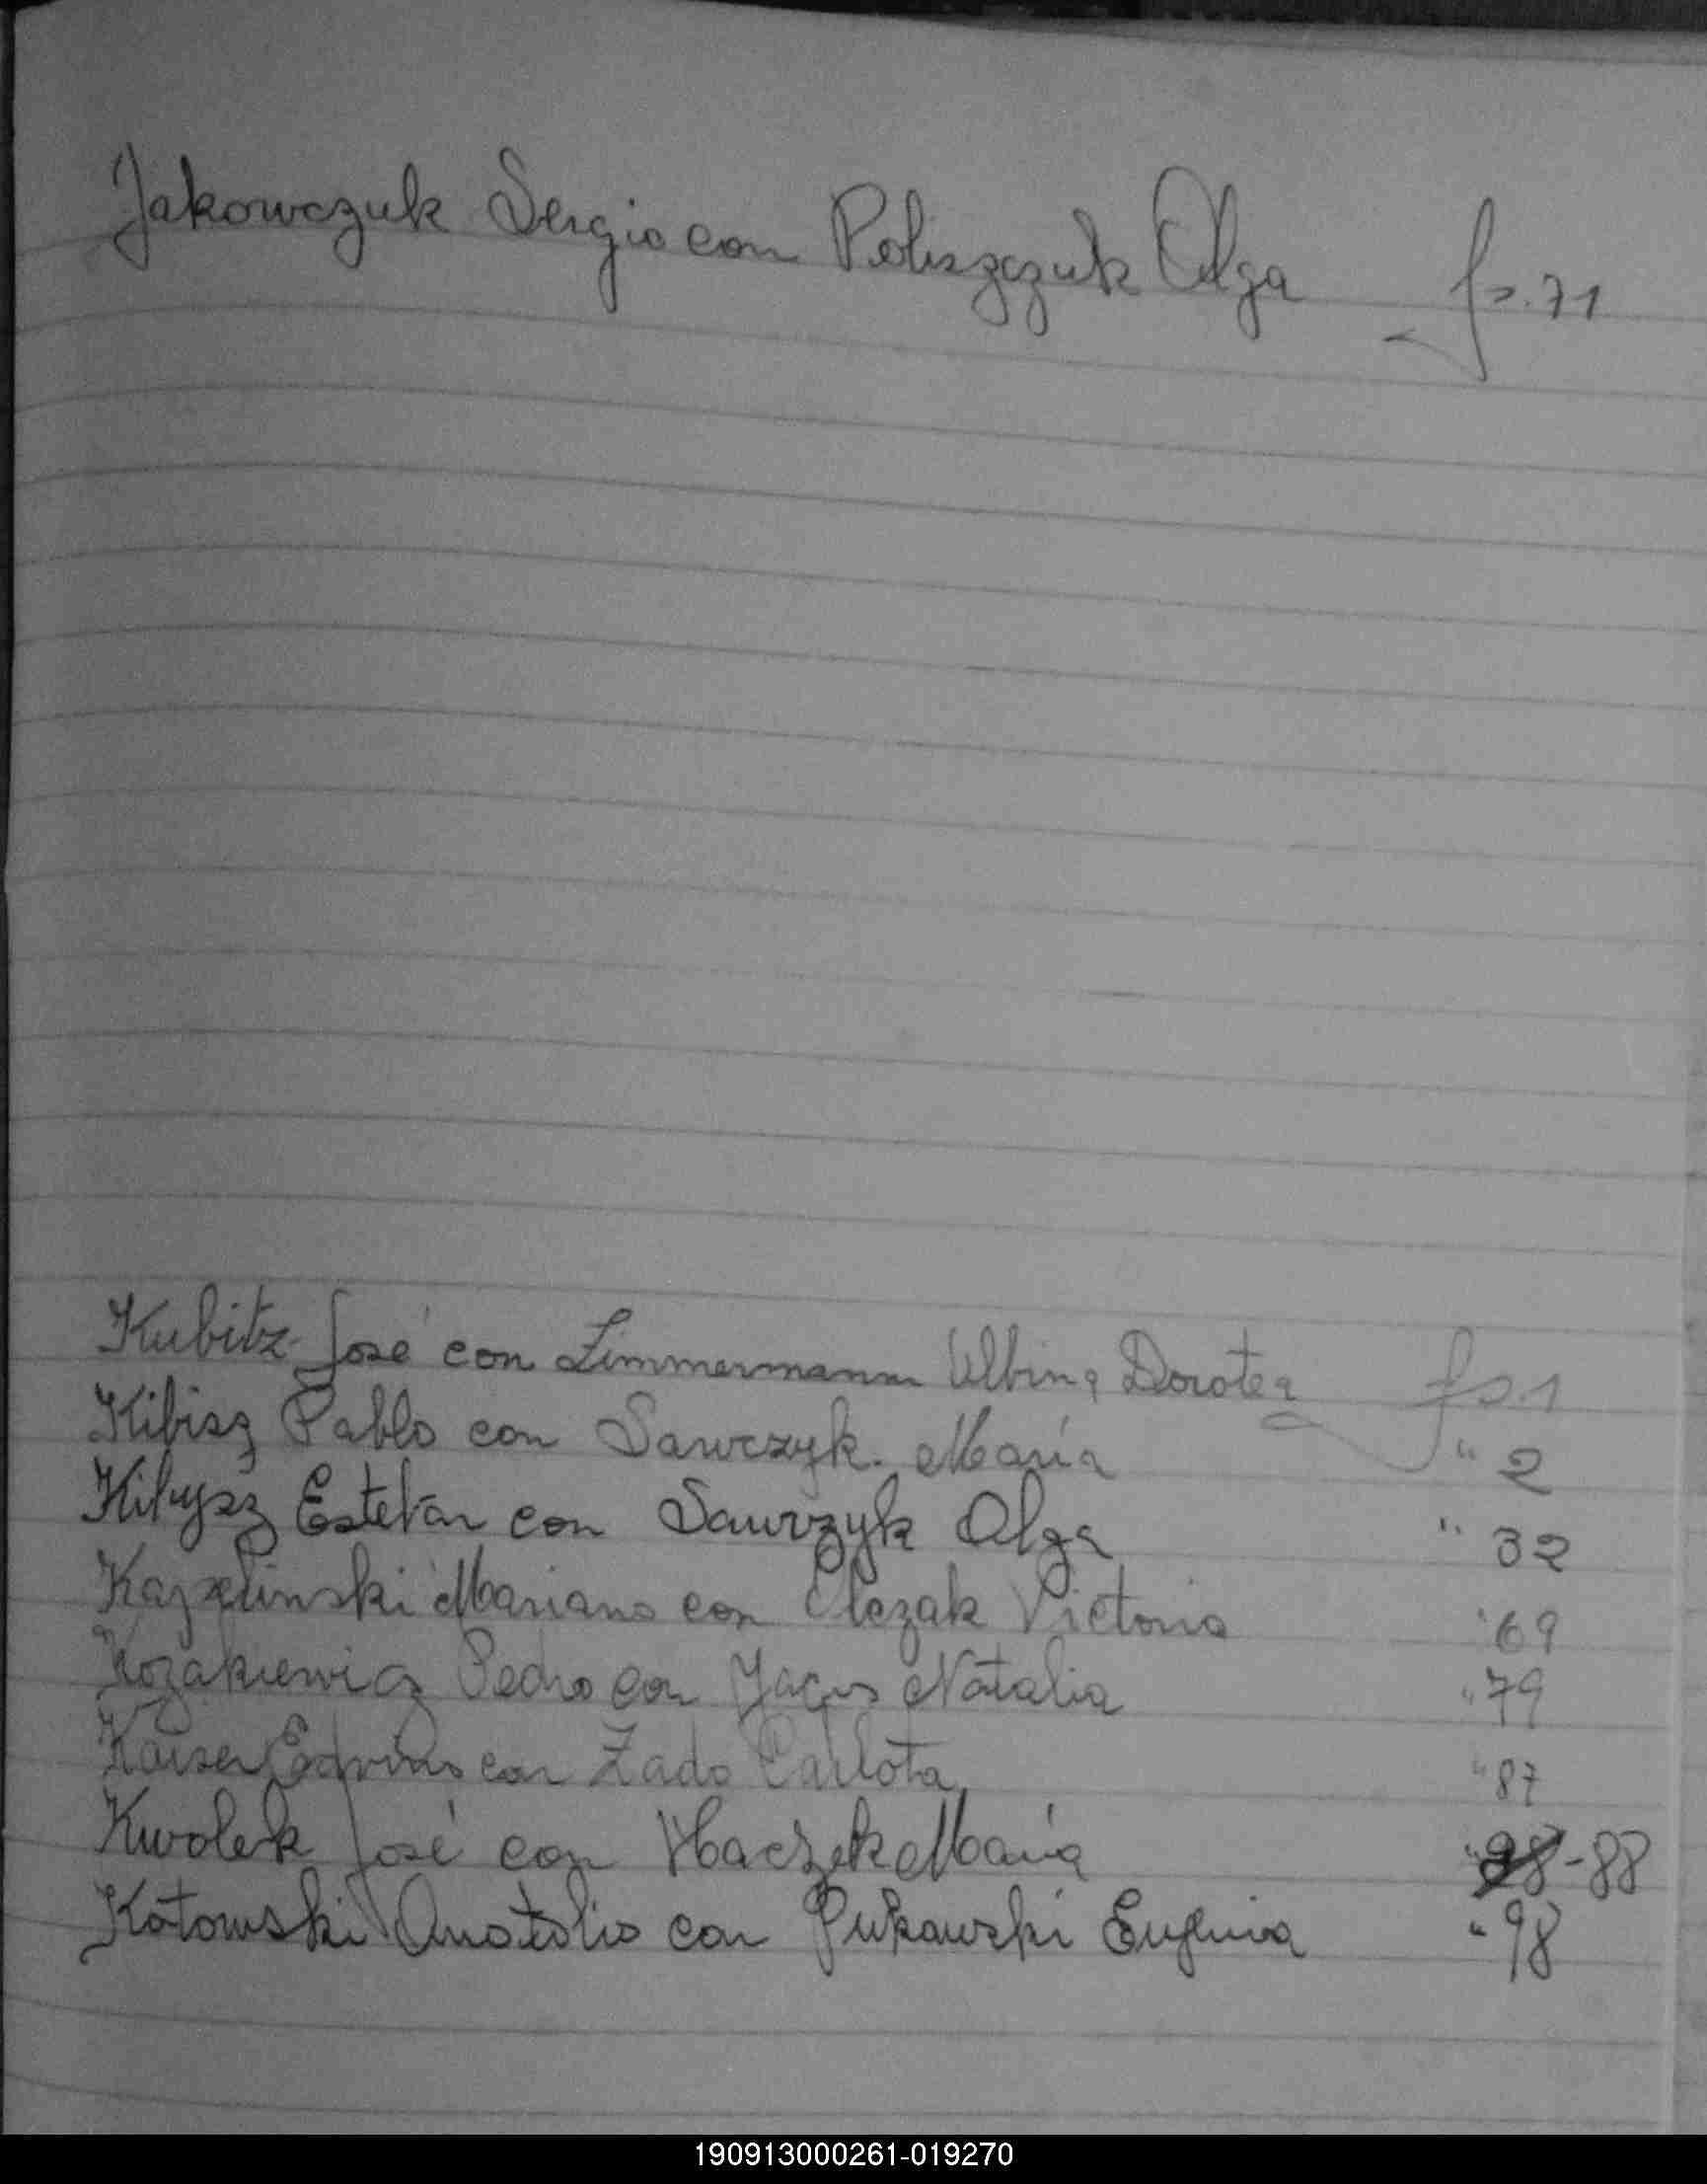 Jakowczuk Sergio con Poliszczuk Olga fs. 71
Kubitz José con Zimmermann Albina Dorotea fs. 1
Kibisz Pablo con Sawczyk María " 2
Kibysz Esteban con Sawczyk Olga " 32
Mariano con Clezak Victoria " 69
Kozakiewicz Pedro con Natalia " 79
Kaiser Edvino con Zado Carlota " 87
Kwolek José con María " 98 - 88
Kotowski Anatolio con Pukawski Eugenia " 98
190913000261-019270